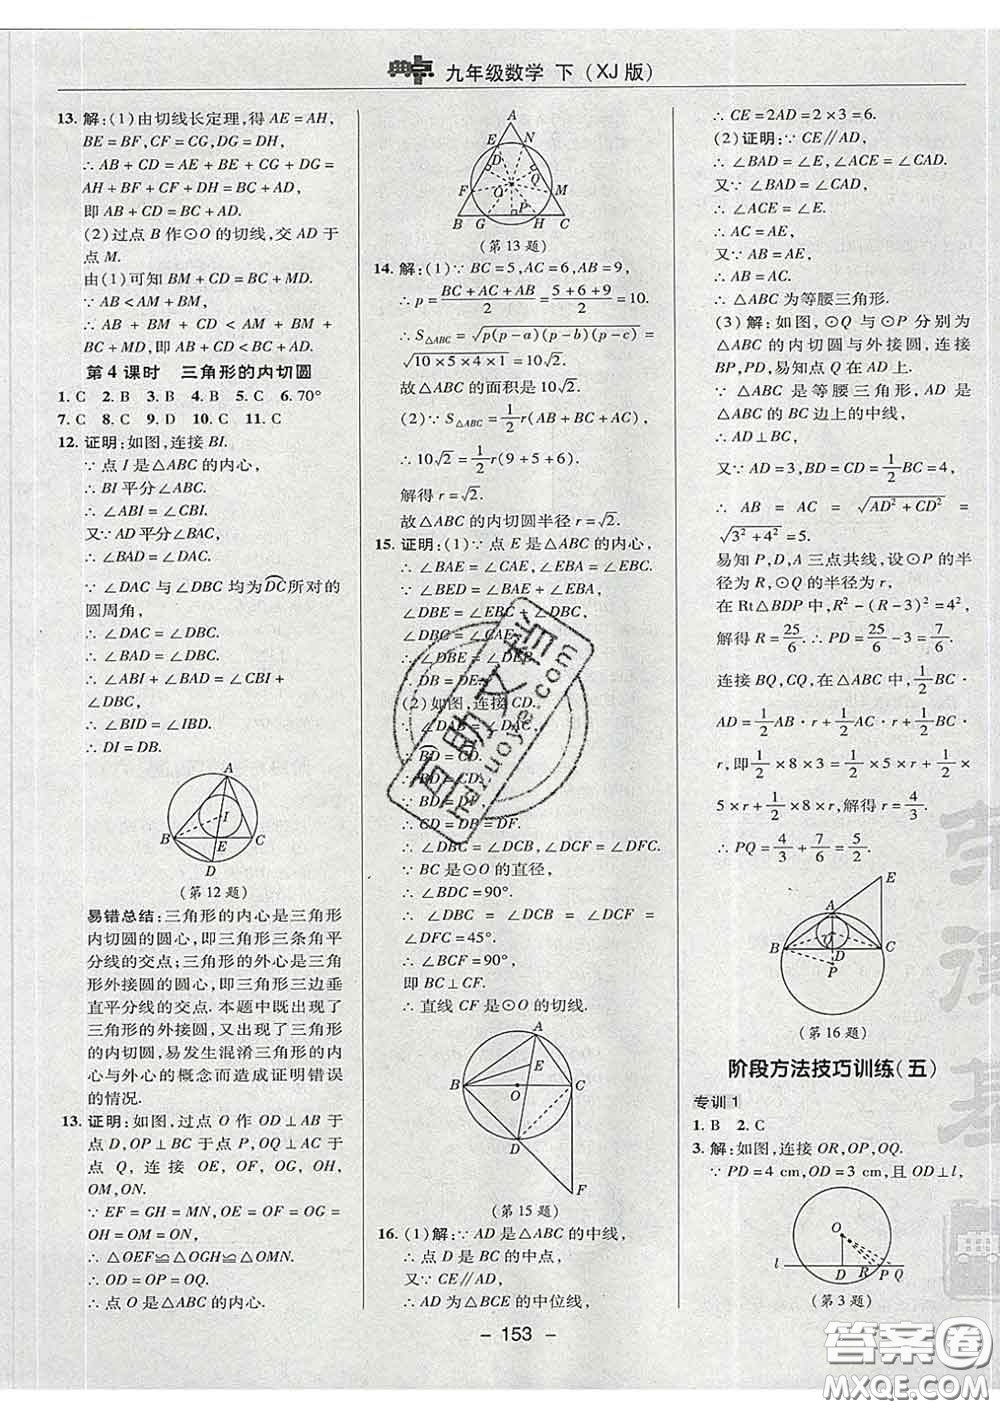 典点 九年级数学 下(XJ版)
13. 解:(1)由切线长定理,得 AE=AH,
BE=BF,CF=CG,DG=DH,
∴ AB+CD=AE+BE+CG+DG=
AH+BF+CF+DH=BC+AD,
即 AB+CD=BC+AD.
(2)过点 B 作⊙O 的切线,交 AD 于
点 M.
由(1)可知 BM+CD=BC+MD.
∵ AB<AM+BM,
∴ AB+CD<AM+BM+CD=
BC+MD,即 AB+CD<BC+AD.
第4课时 三角形的内切圆
1. C 2. B 3. B 4. B 5. C 6. 70°
7. C 8. C 9. D 10. C 11. C
12. 证明:如图,连接 BI.
∵ 点 I 是△ABC 的内心,
∴ BI 平分∠ABC.
∴ ∠ABI=∠CBI.
又∵ AD 平分∠BAC,
∴ ∠BAD=∠DAC.
∵ ∠DAC 与∠DBC 均为DC所对的
圆周角,
∴ ∠DAC=∠DBC.
∴ ∠ABI+∠BAD=∠CBI+
∠DBC,
∴ ∠BID=∠IBD.
∴ DI=DB.
A
I
B E C
D
(第12题)
易错总结:三角形的内心是三角形
内切圆的圆心,即三角形三条角平
分线的交点;三角形的外心是三角
形外接圆的圆心,即三角形三边垂
直平分线的交点. 本题中既出现了
三角形的外接圆,又出现了三角形
的内切圆,易发生混淆三角形的内
心与外心的概念而造成证明错误
的情况.
13. 证明:如图,过点 O 作 OD⊥AB 于
点 D,OP⊥BC 于点 P,OQ⊥AC 于
点 Q,连接 OE,OF,OG,OH,
OM,ON.
∵ EF=GH=MN,OE=OF=OG=
OH=OM=ON,
∴ △OEF≌△OGH≌△OMN.
∴ OD=OP=OQ.
∴ 点 O 是△ABC 的内心.
A
E N
D
Q
F O M
P
B G H C
(第13题)
14. 解:(1)∵ BC=5,AC=6,AB=9,
∴ p=(BC+AC+AB)/2=(5+6+9)/2=10.
∴ S△ABC=√(p(p-a)(p-b)(p-c))=
√(10×5×4×1)=10√2.
故△ABC 的面积是 10√2.
(2)∵ S△ABC=1/2 r(AB+BC+AC),
∴ 10√2=1/2 r(9+5+6).
解得 r=√2.
故△ABC 的内切圆半径 r=√2.
15. 证明:(1)∵ 点 E 是△ABC 的内心,
∴ ∠BAE=∠CAE,∠EBA=∠EBC.
∵ ∠BED=∠BAE+∠EBA,
∠DBE=∠EBC+∠DBC,
∠DBC=∠CAE,
∴ ∠DBE=∠DEB.
∴ DB=DE.
(2)如图,连接 CD.
∵ ∠DAB=∠DAC,
∴ BD=CD.
∴ BD=CD.
∵ BD=DF,
∴ CD=DB=DF.
∴ ∠DBC=∠DCB,∠DCF=∠F.
∵ BC 是⊙O 的直径,
∴ ∠BDC=90°.
∴ ∠DBC=∠DCB=∠DCF=
∠DFC=45°.
∴ ∠BCF=90°,
即 BC⊥CF.
∴ 直线 CF 是⊙O 的切线.
A
E
B O C
D
F
(第15题)
16. (1)解:∵ AD 是△ABC 的中线,
∴ 点 D 是 BC 的中点,
又∵ CE∥AD,
∴ AD 为△BCE 的中位线,
∴ CE=2AD=2×3=6.
(2)证明:∵ CE∥AD,
∴ ∠BAD=∠E,∠CAD=∠ACE.
又∵ ∠BAD=∠CAD,
∴ ∠ACE=∠E.
∴ AC=AE,
又∵ AB=AE,
∴ AB=AC.
∴ △ABC 为等腰三角形.
(3)解:如图,⊙Q 与⊙P 分别为
△ABC 的内切圆与外接圆,连接
BP,PD,易知点 P 在 AD 上.
∵ △ABC 是等腰三角形,AD 是
△ABC 的 BC 边上的中线,
∴ AD⊥BC,
又∵ AD=3,BD=CD=1/2 BC=4,
∴ AB=AC=√(AD²+CD²)=
√(3²+4²)=5.
易知 P,D,A 三点共线,设⊙P 的半
径为 R,⊙Q 的半径为 r,
在 Rt△BDP 中,R²-(R-3)²=4²,
解得 R=25/6. ∴ PD=25/6-3=7/6.
连接 BQ,CQ,在△ABC 中,1/2 BC·
AD=1/2 AB·r+1/2 AC·r+1/2 BC·
r,即 1/2×8×3=1/2×5×r+1/2×
5×r+1/2×8×r,解得 r=4/3.
∴ PQ=4/3+7/6=5/2.
E
A
Q
B D C
P
(第16题)
阶段方法技巧训练(五)
专训1
1. B 2. C
3. 解:如图,连接 OR,OP,OQ.
∵ PD=4 cm,OD=3 cm,且 OD⊥l,
O
l D R P Q
(第3题)
- 153 -
百助文档
bdzuoye.com
典
答案圈
MXQE.COM